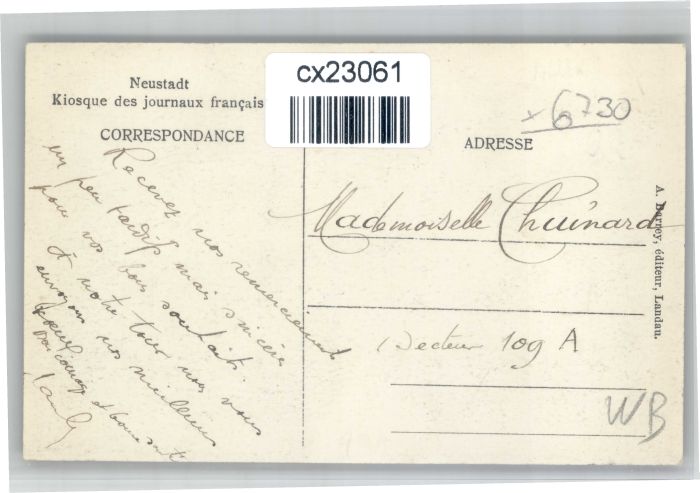 cx23061
Neustadt
Kiosque des journaux français
CORRESPONDANCE
Recevez nos remerciements
un peu tardifs mais sincères
pour vos bons souhaits.
A notre tour nous vous
envoyons nos meilleurs
voeux
bon courage et bonne santé
x 6730
ADRESSE
Mademoiselle Chuinard
Secteur 109 A
WB
A. Barrey, éditeur, Landau.